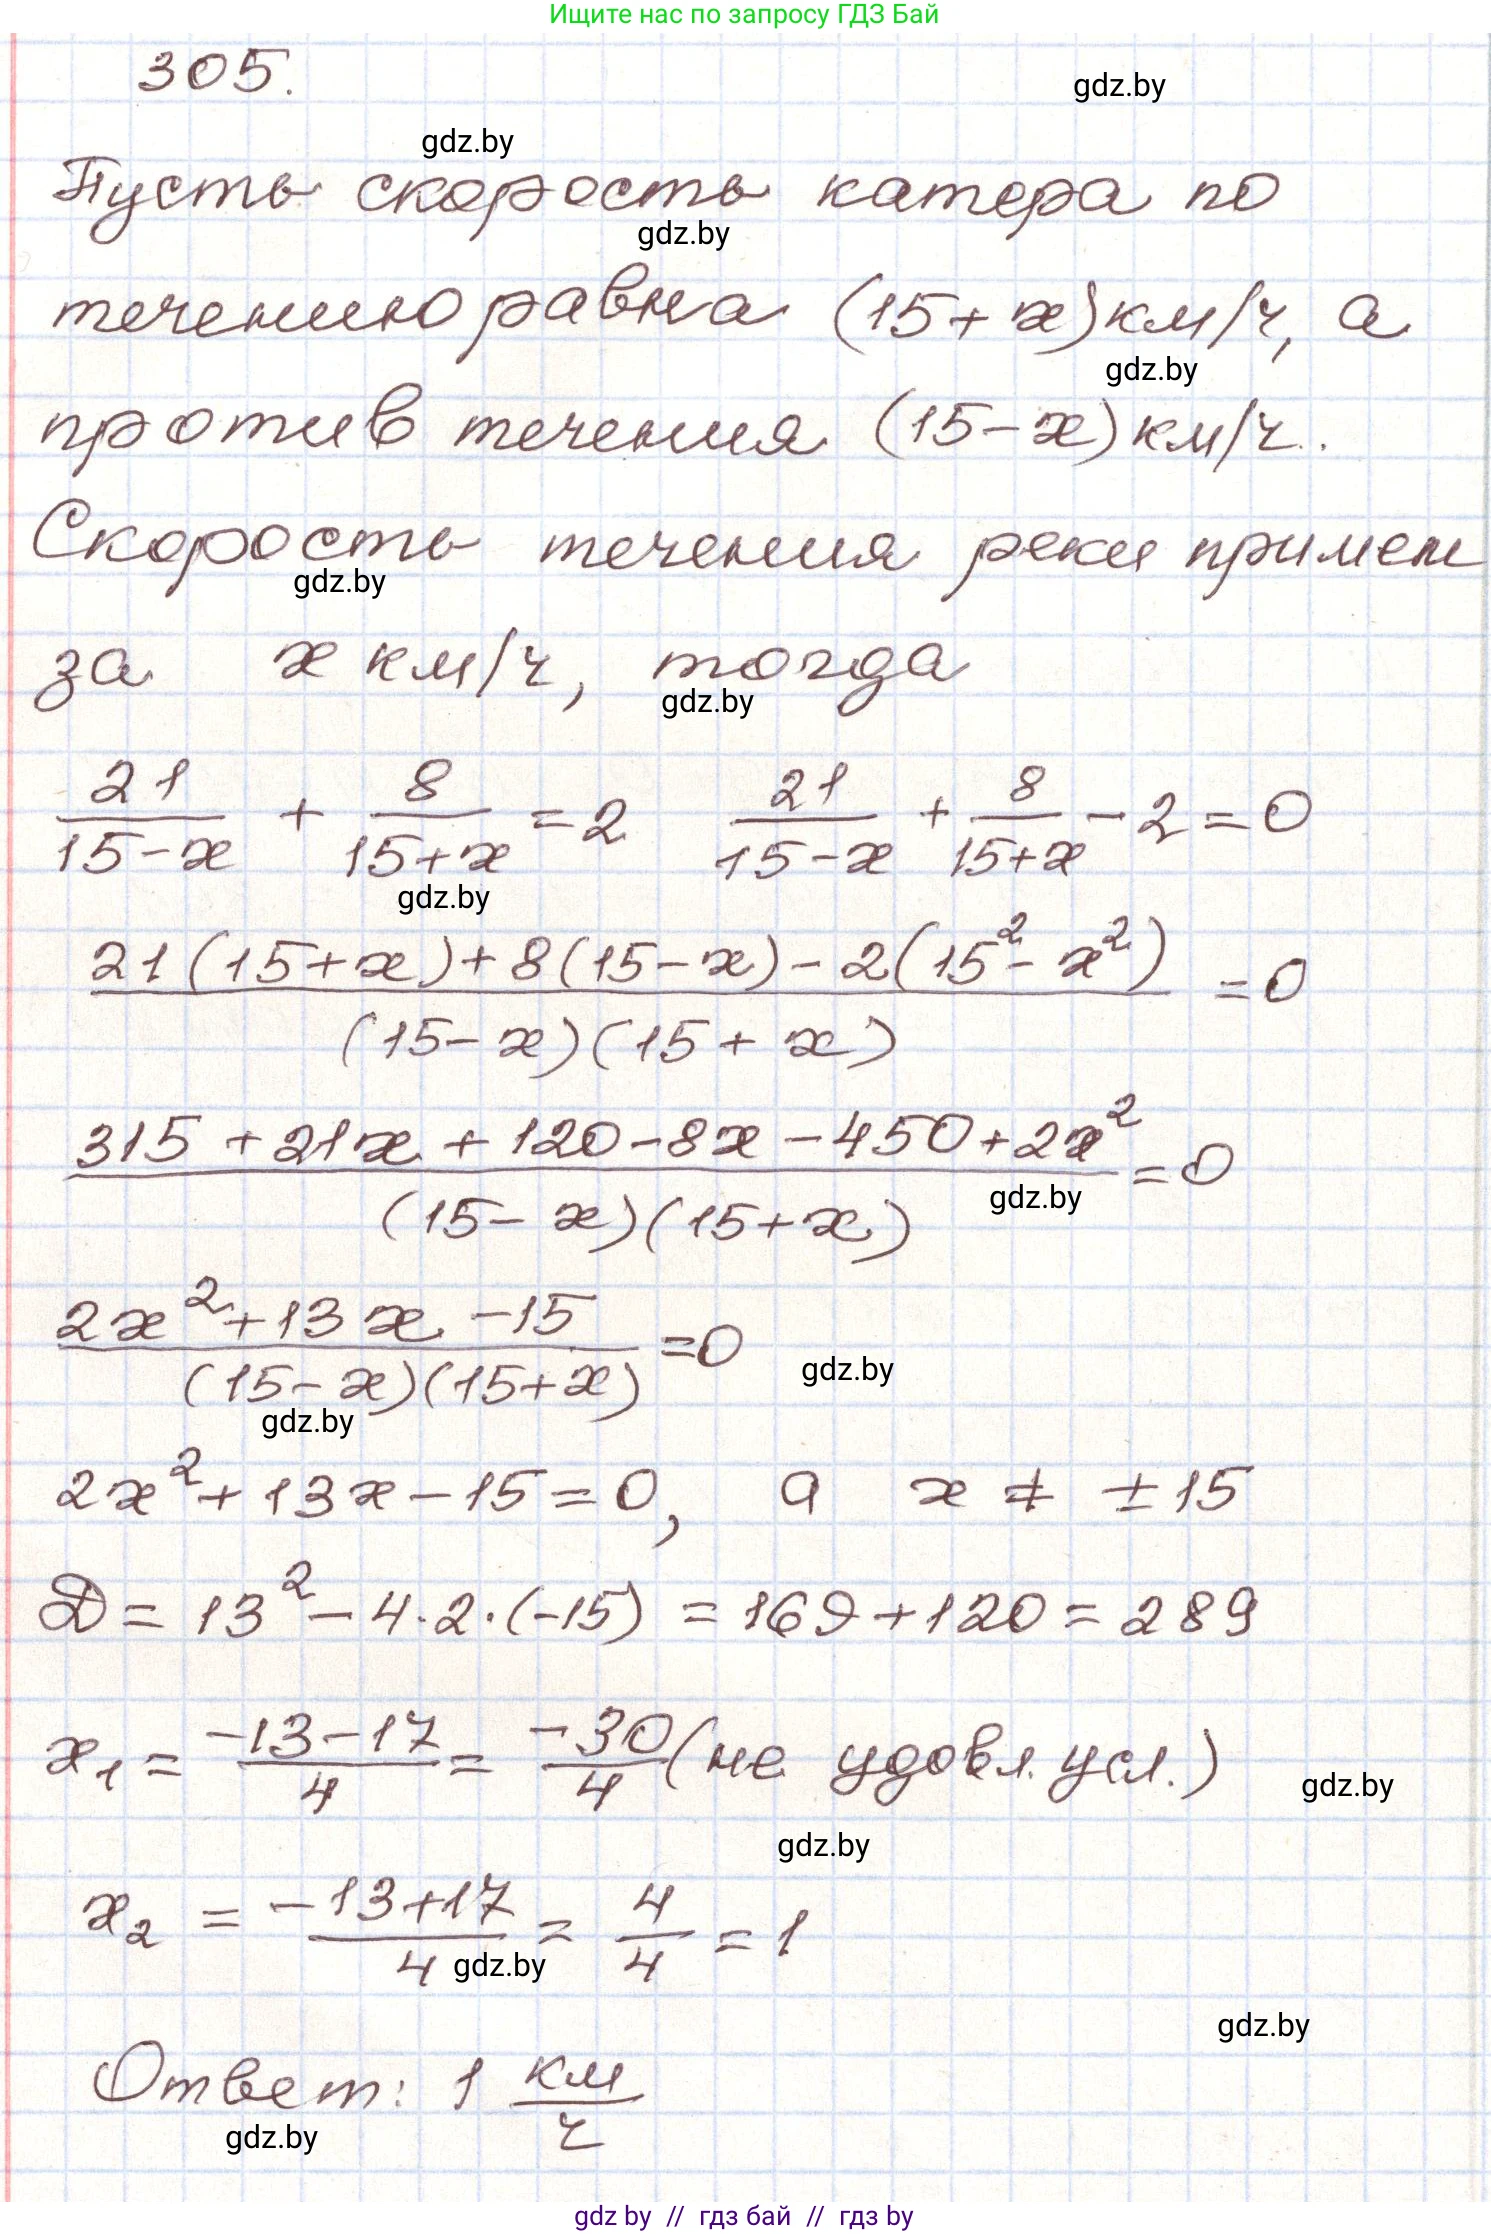 Ищите нас по запросу ГДЗ Бай
305.
gdz.by
gdz.by
Пусть скорость катера по
gdz.by
течению равна (15+x) км/ч, а
gdz.by
против течения (15-x) км/ч.
Скорость течения реки примем
gdz.by
за x км/ч, тогда
gdz.by
21/(15-x) + 8/(15+x) = 2   21/(15-x) + 8/(15+x) - 2 = 0
gdz.by
(21(15+x)+8(15-x)-2(15²-x²))/((15-x)(15+x)) = 0
(315+21x+120-8x-450+2x²)/((15-x)(15+x)) = 0
gdz.by
(2x²+13x-15)/((15-x)(15+x)) = 0
gdz.by
gdz.by
2x²+13x-15=0, а x ≠ ±15
D = 13²-4·2·(-15) = 169+120 = 289
x₁ = (-13-17)/4 = -30/4 (не удовл. усл.)
gdz.by
gdz.by
x₂ = (-13+17)/4 = 4/4 = 1
gdz.by
gdz.by
Ответ: 1 км/ч
gdz.by
gdz by // гдз бай // гдз by